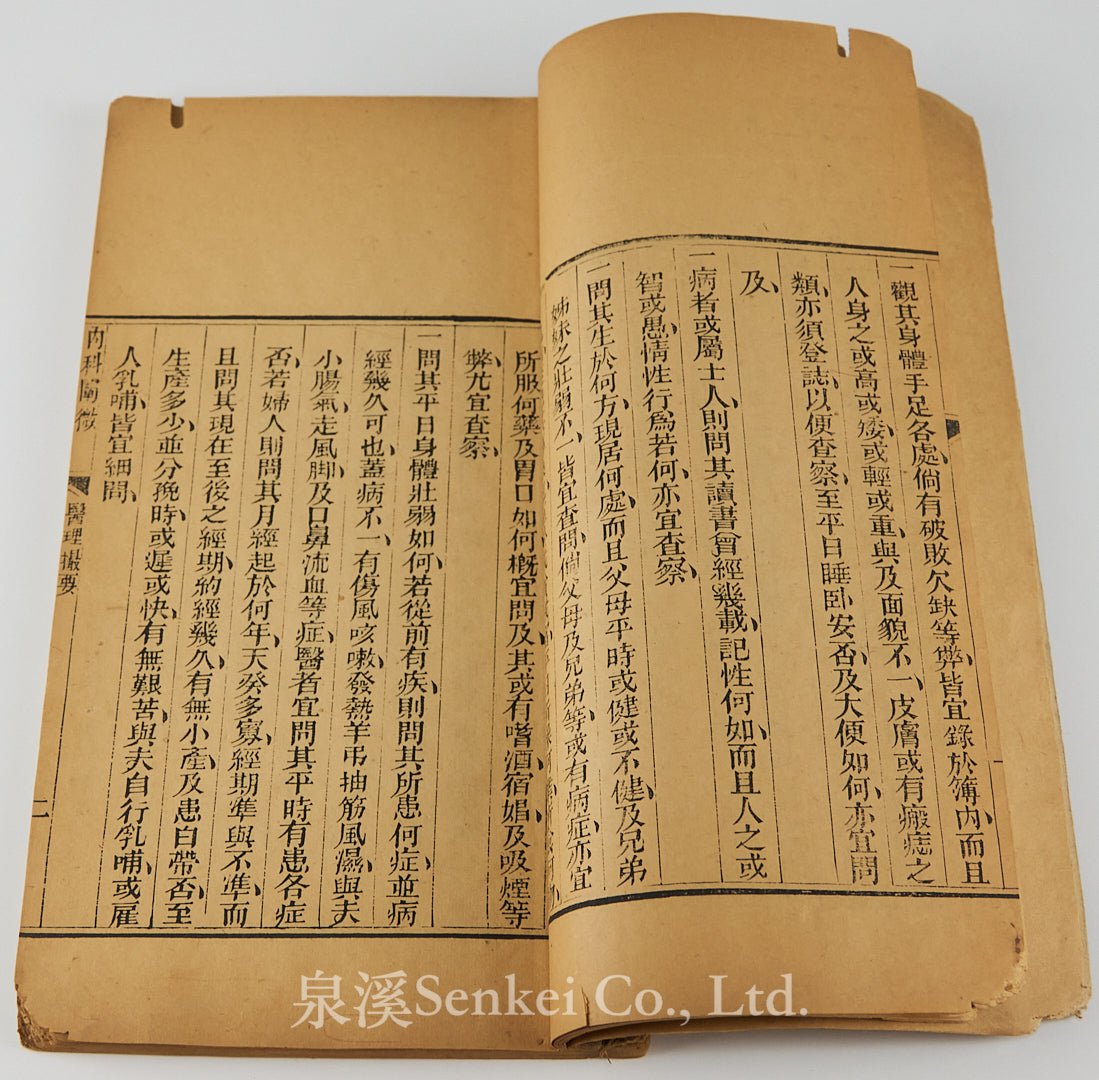 一觀其身體手足各處、倘有破敗欠缺等弊、皆宜錄於簿內、而且
人身之或高或矮、或輕或重、與及面貌不一、皮膚或有癜痣之
類、亦須登誌、以便查察、至平日睡臥安否、及大便如何、亦宜問
及、
一病者或屬士人、則問其讀書曾經幾載、記性何如、而且人之或
智或愚、情性行為若何、亦宜查察、
一問其生於何方、現居何處、而且父母平時或健或不健、及兄弟
姊妹之壯弱不一、皆宜查問、倘父母及兄弟等或有病症、亦宜
所服何藥、及胃口如何、概宜問及、其或有嗜酒宿娼、及吸煙等
弊、尤宜查察、
一問其平日身體壯弱如何、若從前有疾、則問其所患何症、並病
經幾久可也、蓋病不一、有傷風咳嗽、發熱羊吊抽筋、風濕、與夫
小腸氣、走風脚、及口鼻流血等症、醫者宜問其平時有患各症
否、若婦人則問其月經起於何年、天癸多寡、經期準與不準、而
且問其現在至後之經期、約經幾久、有無小產、及患白帶否、至
生產多少、並分挽、時或遲或快、有無艱苦、與夫自行乳哺、或雇
人乳哺、皆宜細問、
內科闡微
醫理撮要
二
泉溪Senkei Co., Ltd.